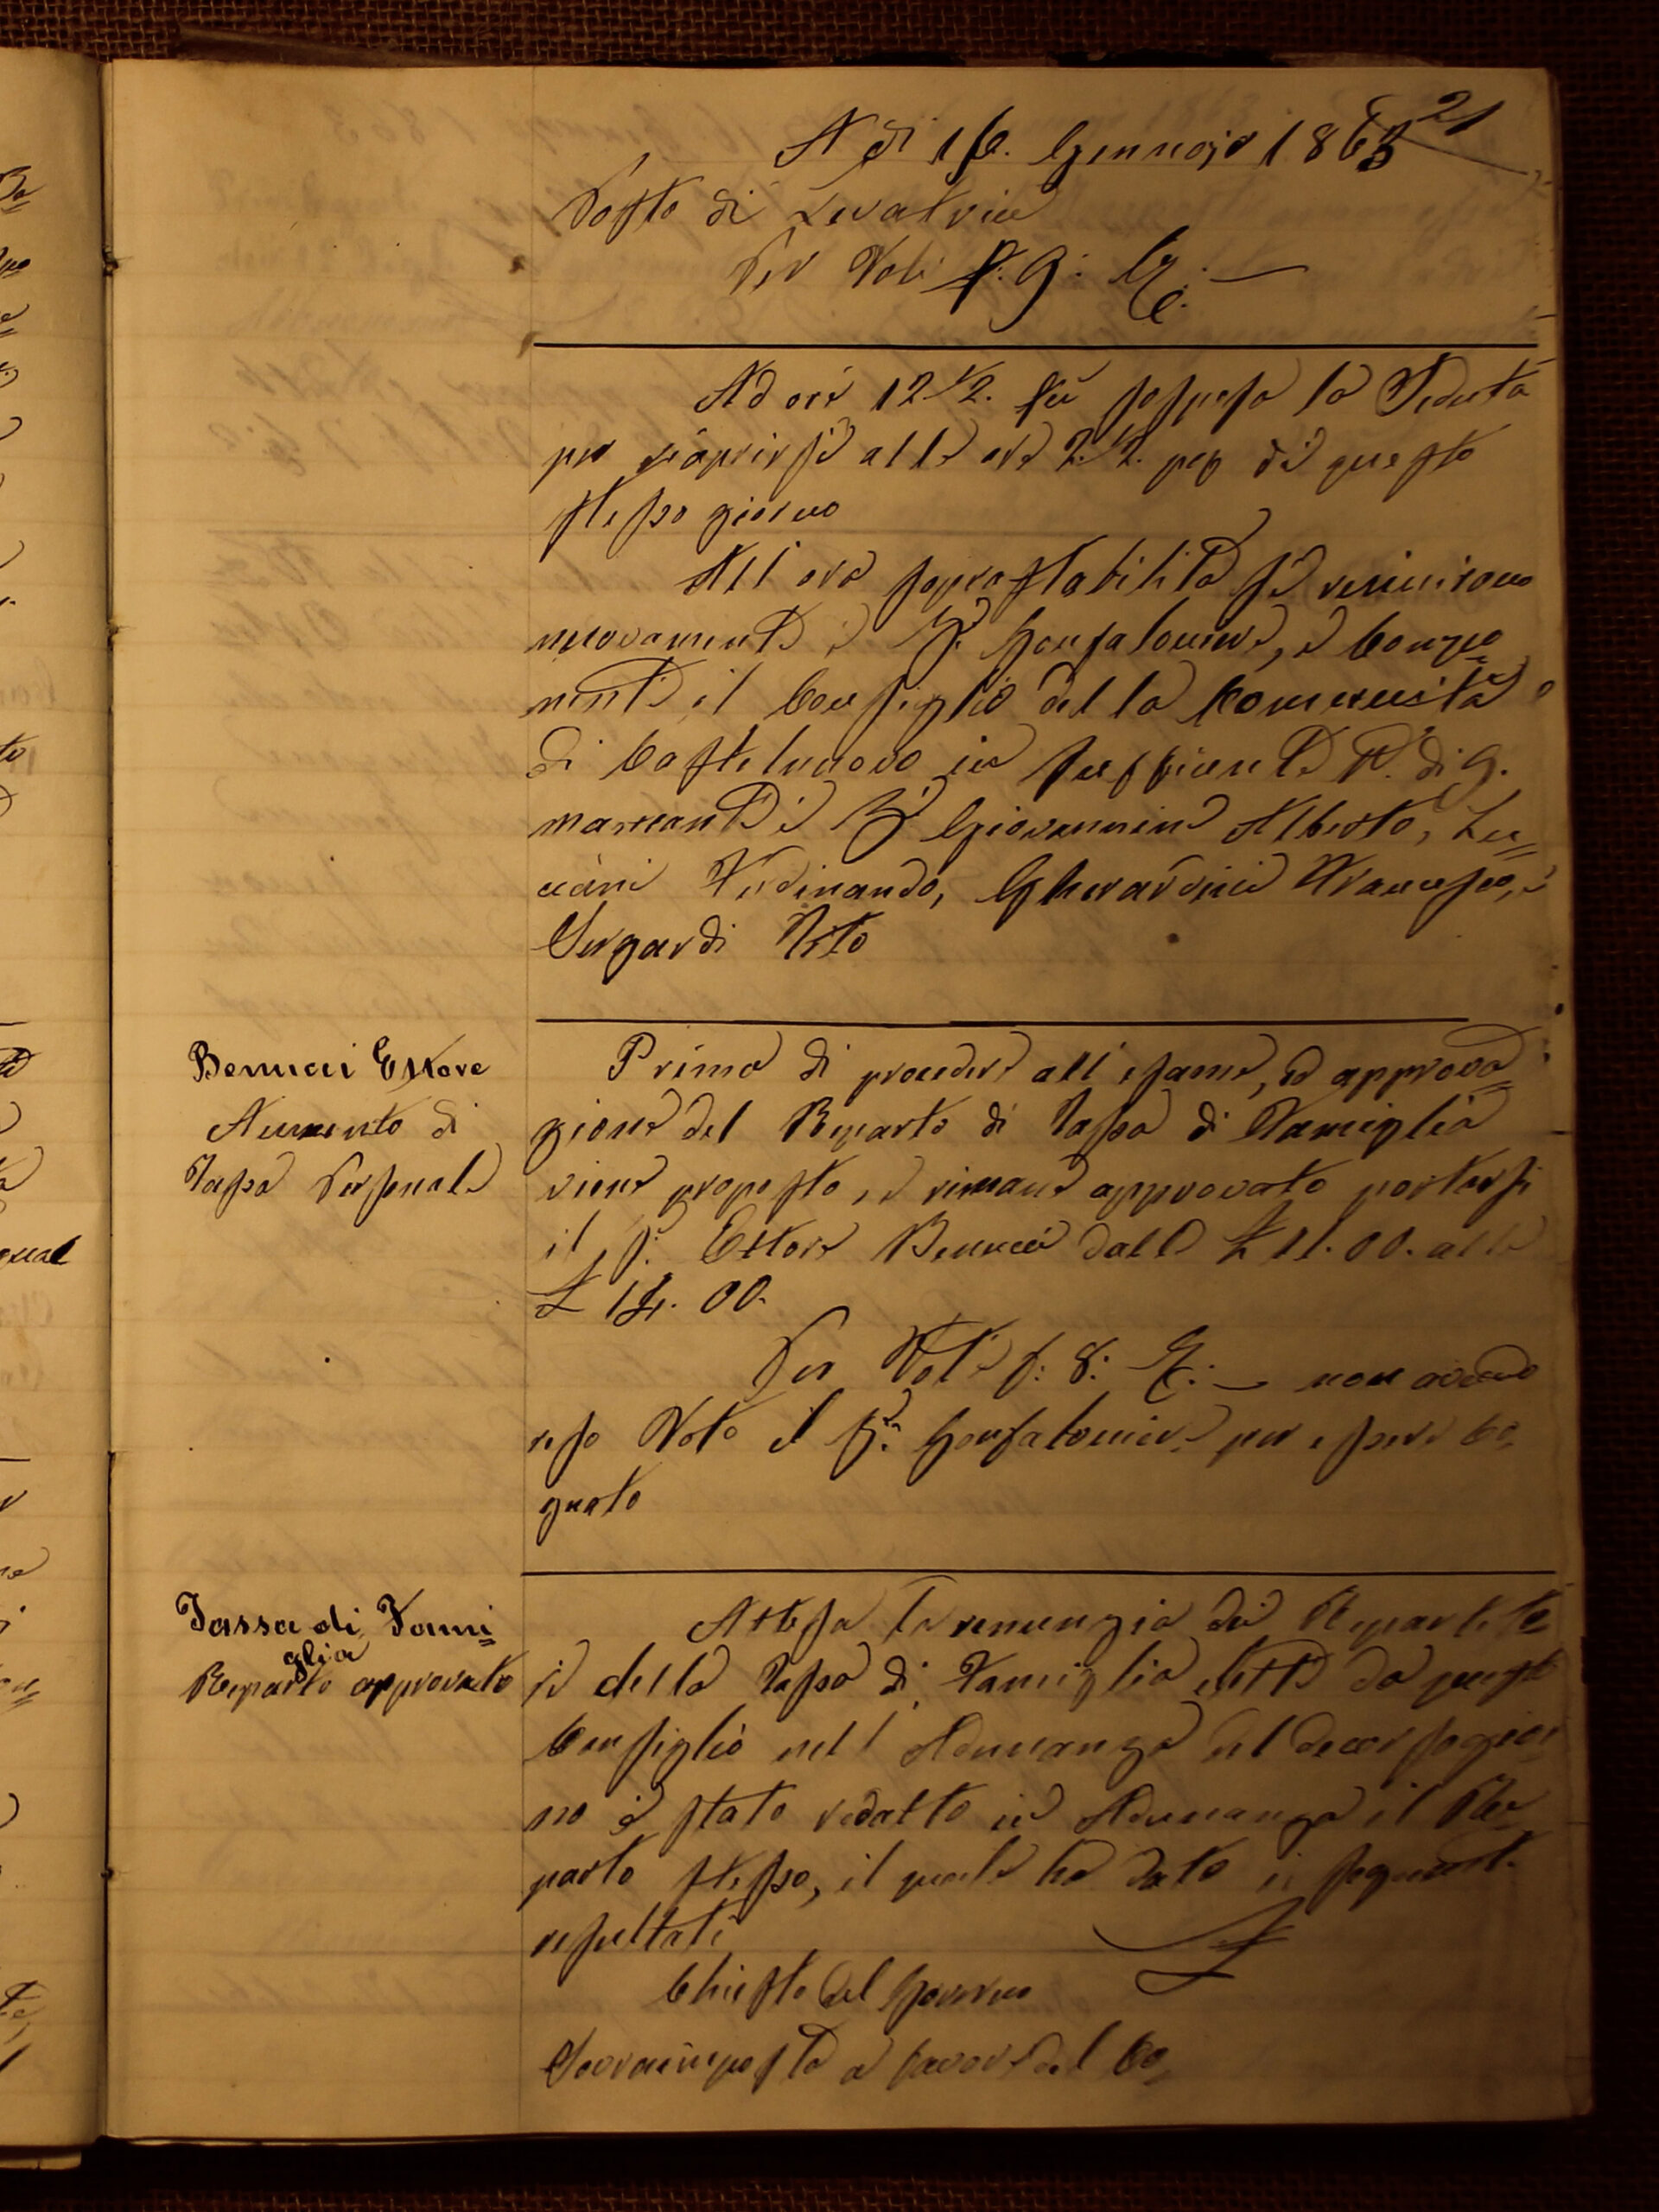 21
A di 16. Gennajo 1863
Posto di Levatrice
Per Voti f: 9: C:
Ad ore 12 1/2. fù sospesa la Seduta
per riaprirsi alle ore 2. 1/2. pep di questo
stesso giorno
All'ora soprastabilita si reunirono
nuovamente i SS.ri Gonfaloniere, e Compo=
nenti il Consiglio della Comunità
di Castelnuovo in sufficiente N.o di 9.
mancanti i SS.ri Giovannini Alberto, Lu=
ciani Ferdinando, Gherardini Francesco, e
Sergardi Tito
Bennuci Ettore
Aumento di
Tassa Personale
Prima di procedere all'esame, ed approva=
zione del Reparto di Tassa di Famiglia
viene proposto, e rimane approvato portarsi
il S. Ettore Bennuci dalle £ 11. 00. alle
£ 14. 00.
Per Voti f: 8: C: — non avendo
reso Voto il S.r Gonfaloniere per essere Co=
gnato
Tassa di Fami=
glia
Reparto approvato
Attesa la renunzia dei Repartito
ri della Tassa di Famiglia eletti da questo
Consiglio nell'Adunanza del decorso gior
no è stato redatto in Adunanza il Re=
parto stesso, il quale ha dato i seguenti
resultati
£
Chiesto dal Governo
Sovraimposta a favore del Co=